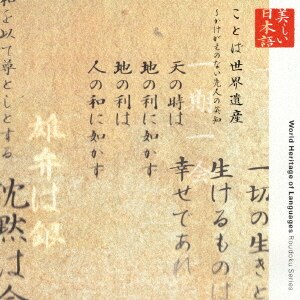 美しい
日本語
World Heritage of Languages Roudoku Series
ことば世界遺産
～かけがえのない先人の英知
一期一会
天の時は
地の利に如かず
地の利は
人の和に如かず
一切の生きと
生けるものは
幸せであれ
雄弁は銀
沈黙は金
和を以て尊しとする